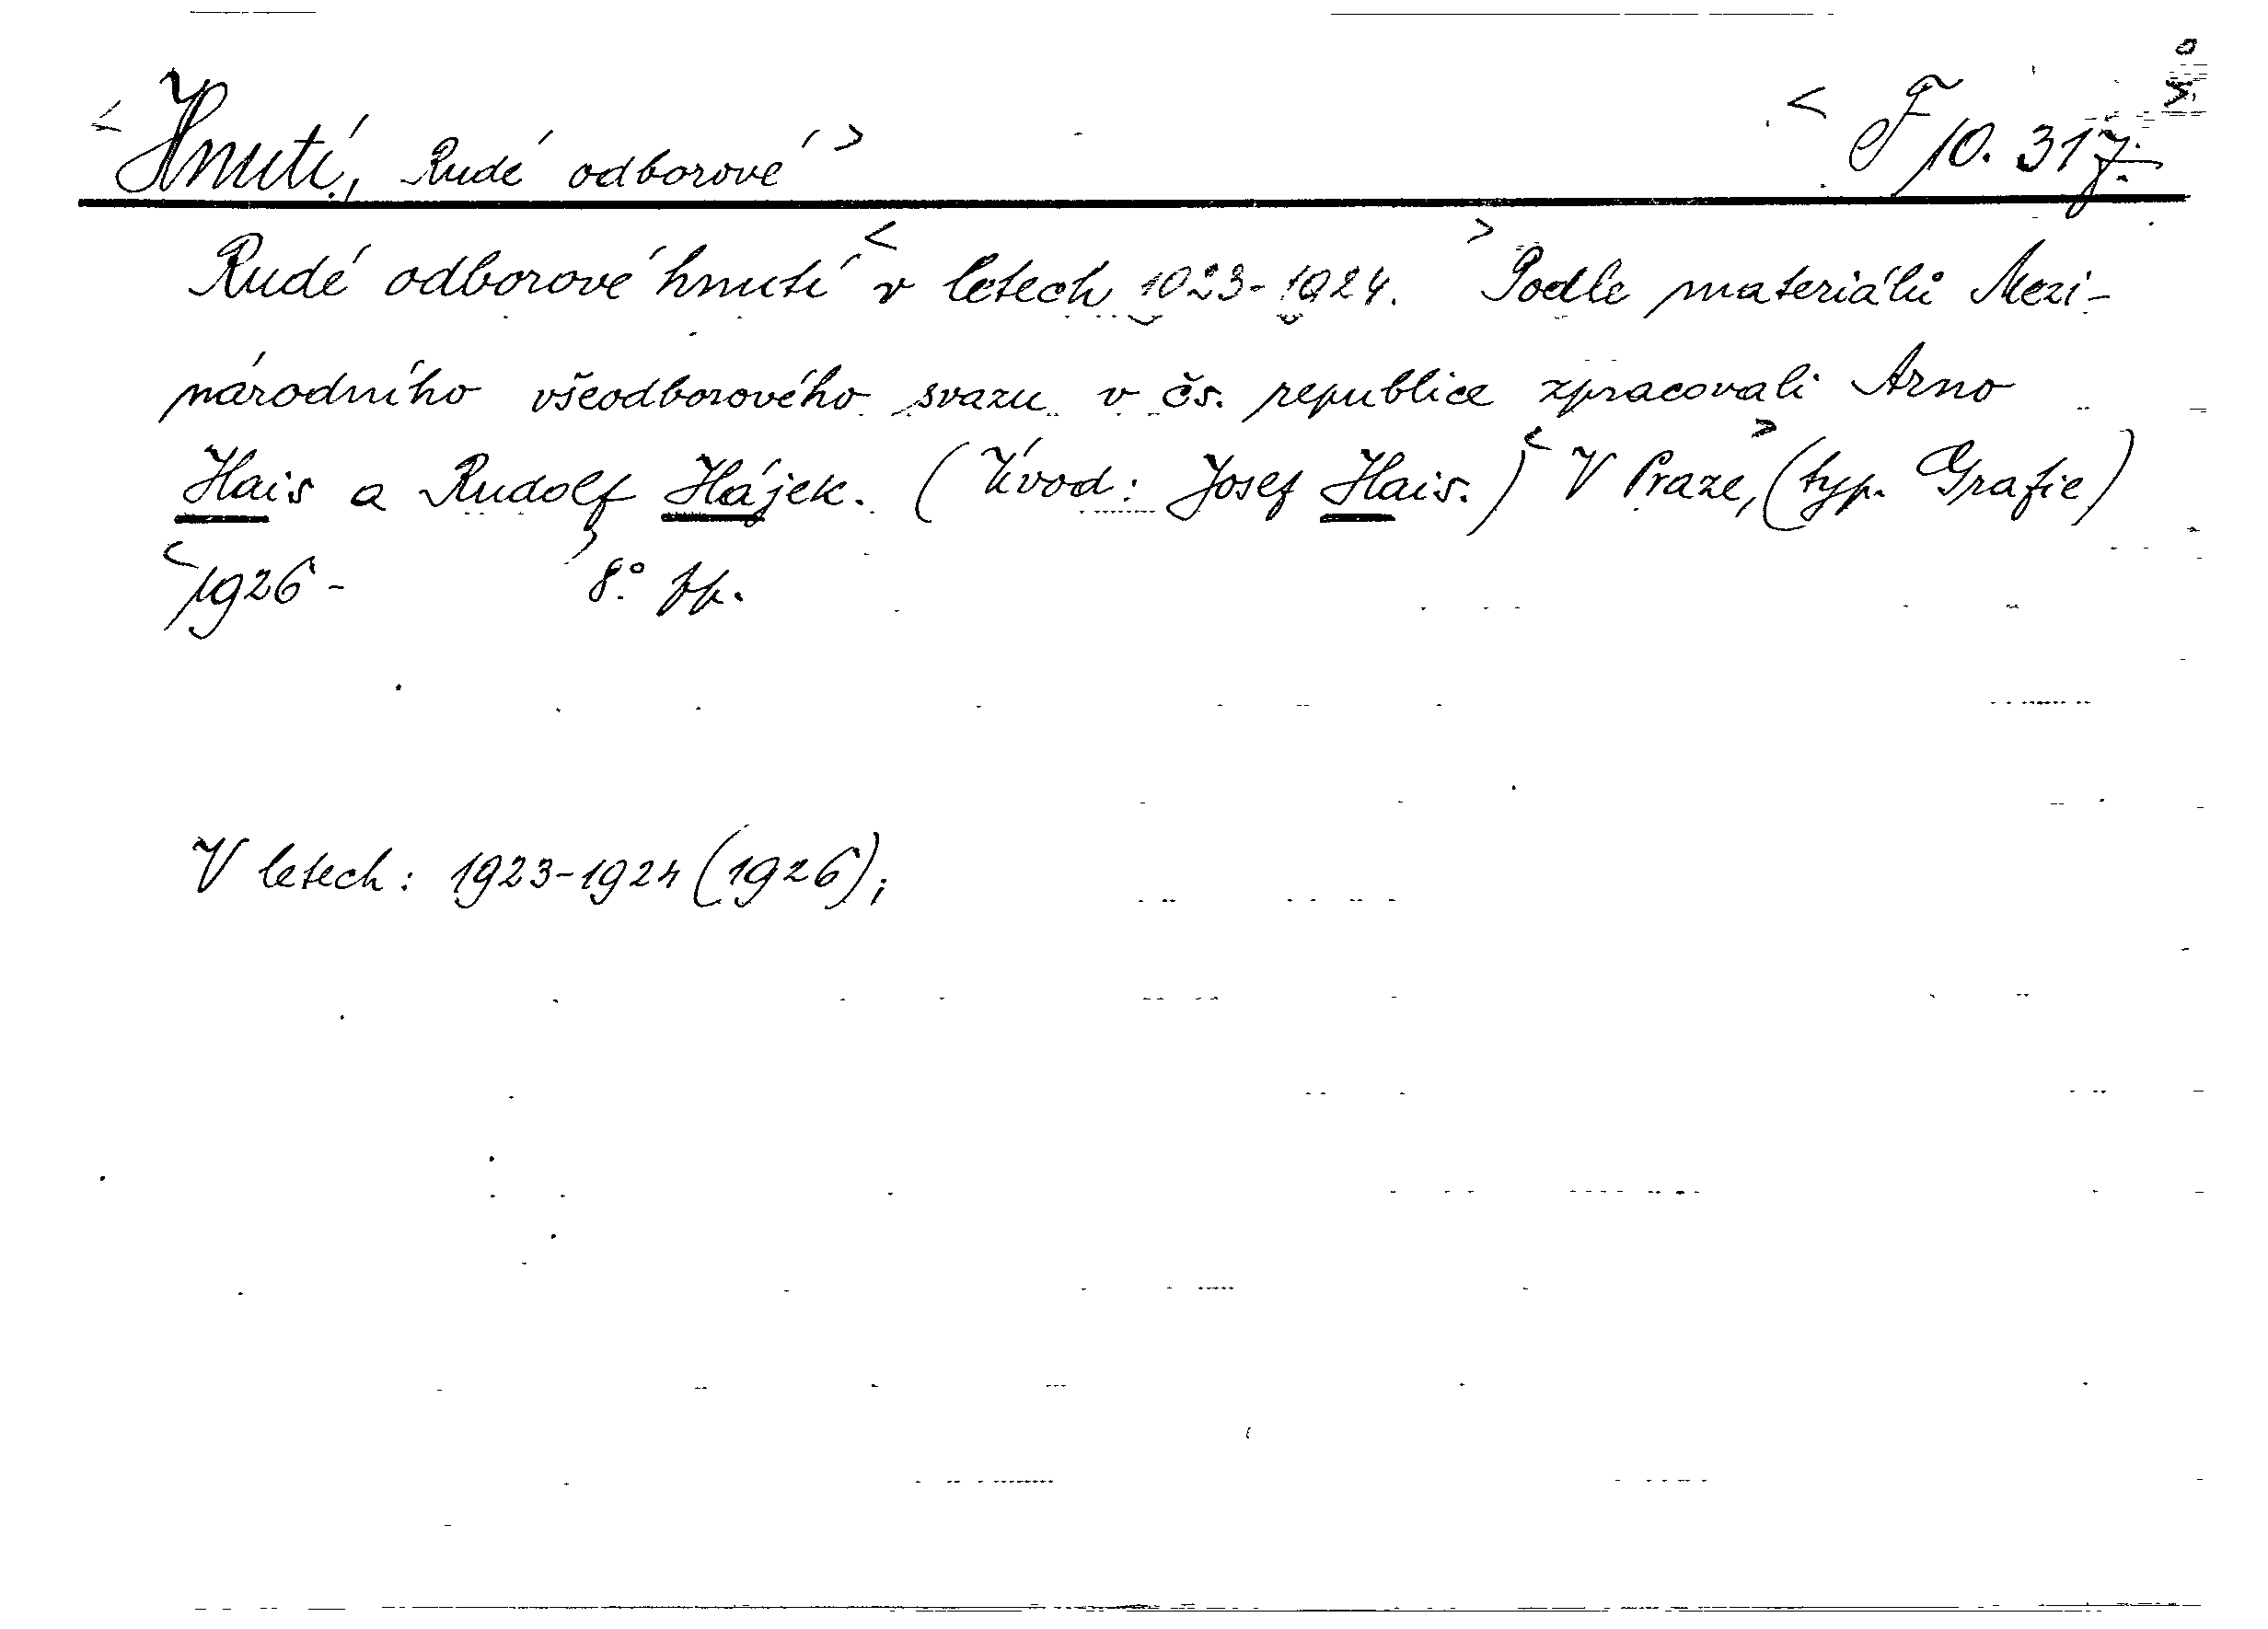 <Hnutí, Rudé odborové> <F 10.317.
Rudé odborové hnutí <v letech 1923-1924.> Podle materiálů Mezi-
národního všeodborového svazu v čs. republice zpracovali Arno
Hais a Rudolf Hájek. (Úvod: Josef Hais.) <V Praze,> (typ. Grafie)
<1926 - > 8.° pp.
V letech: 1923-1924 (1926);